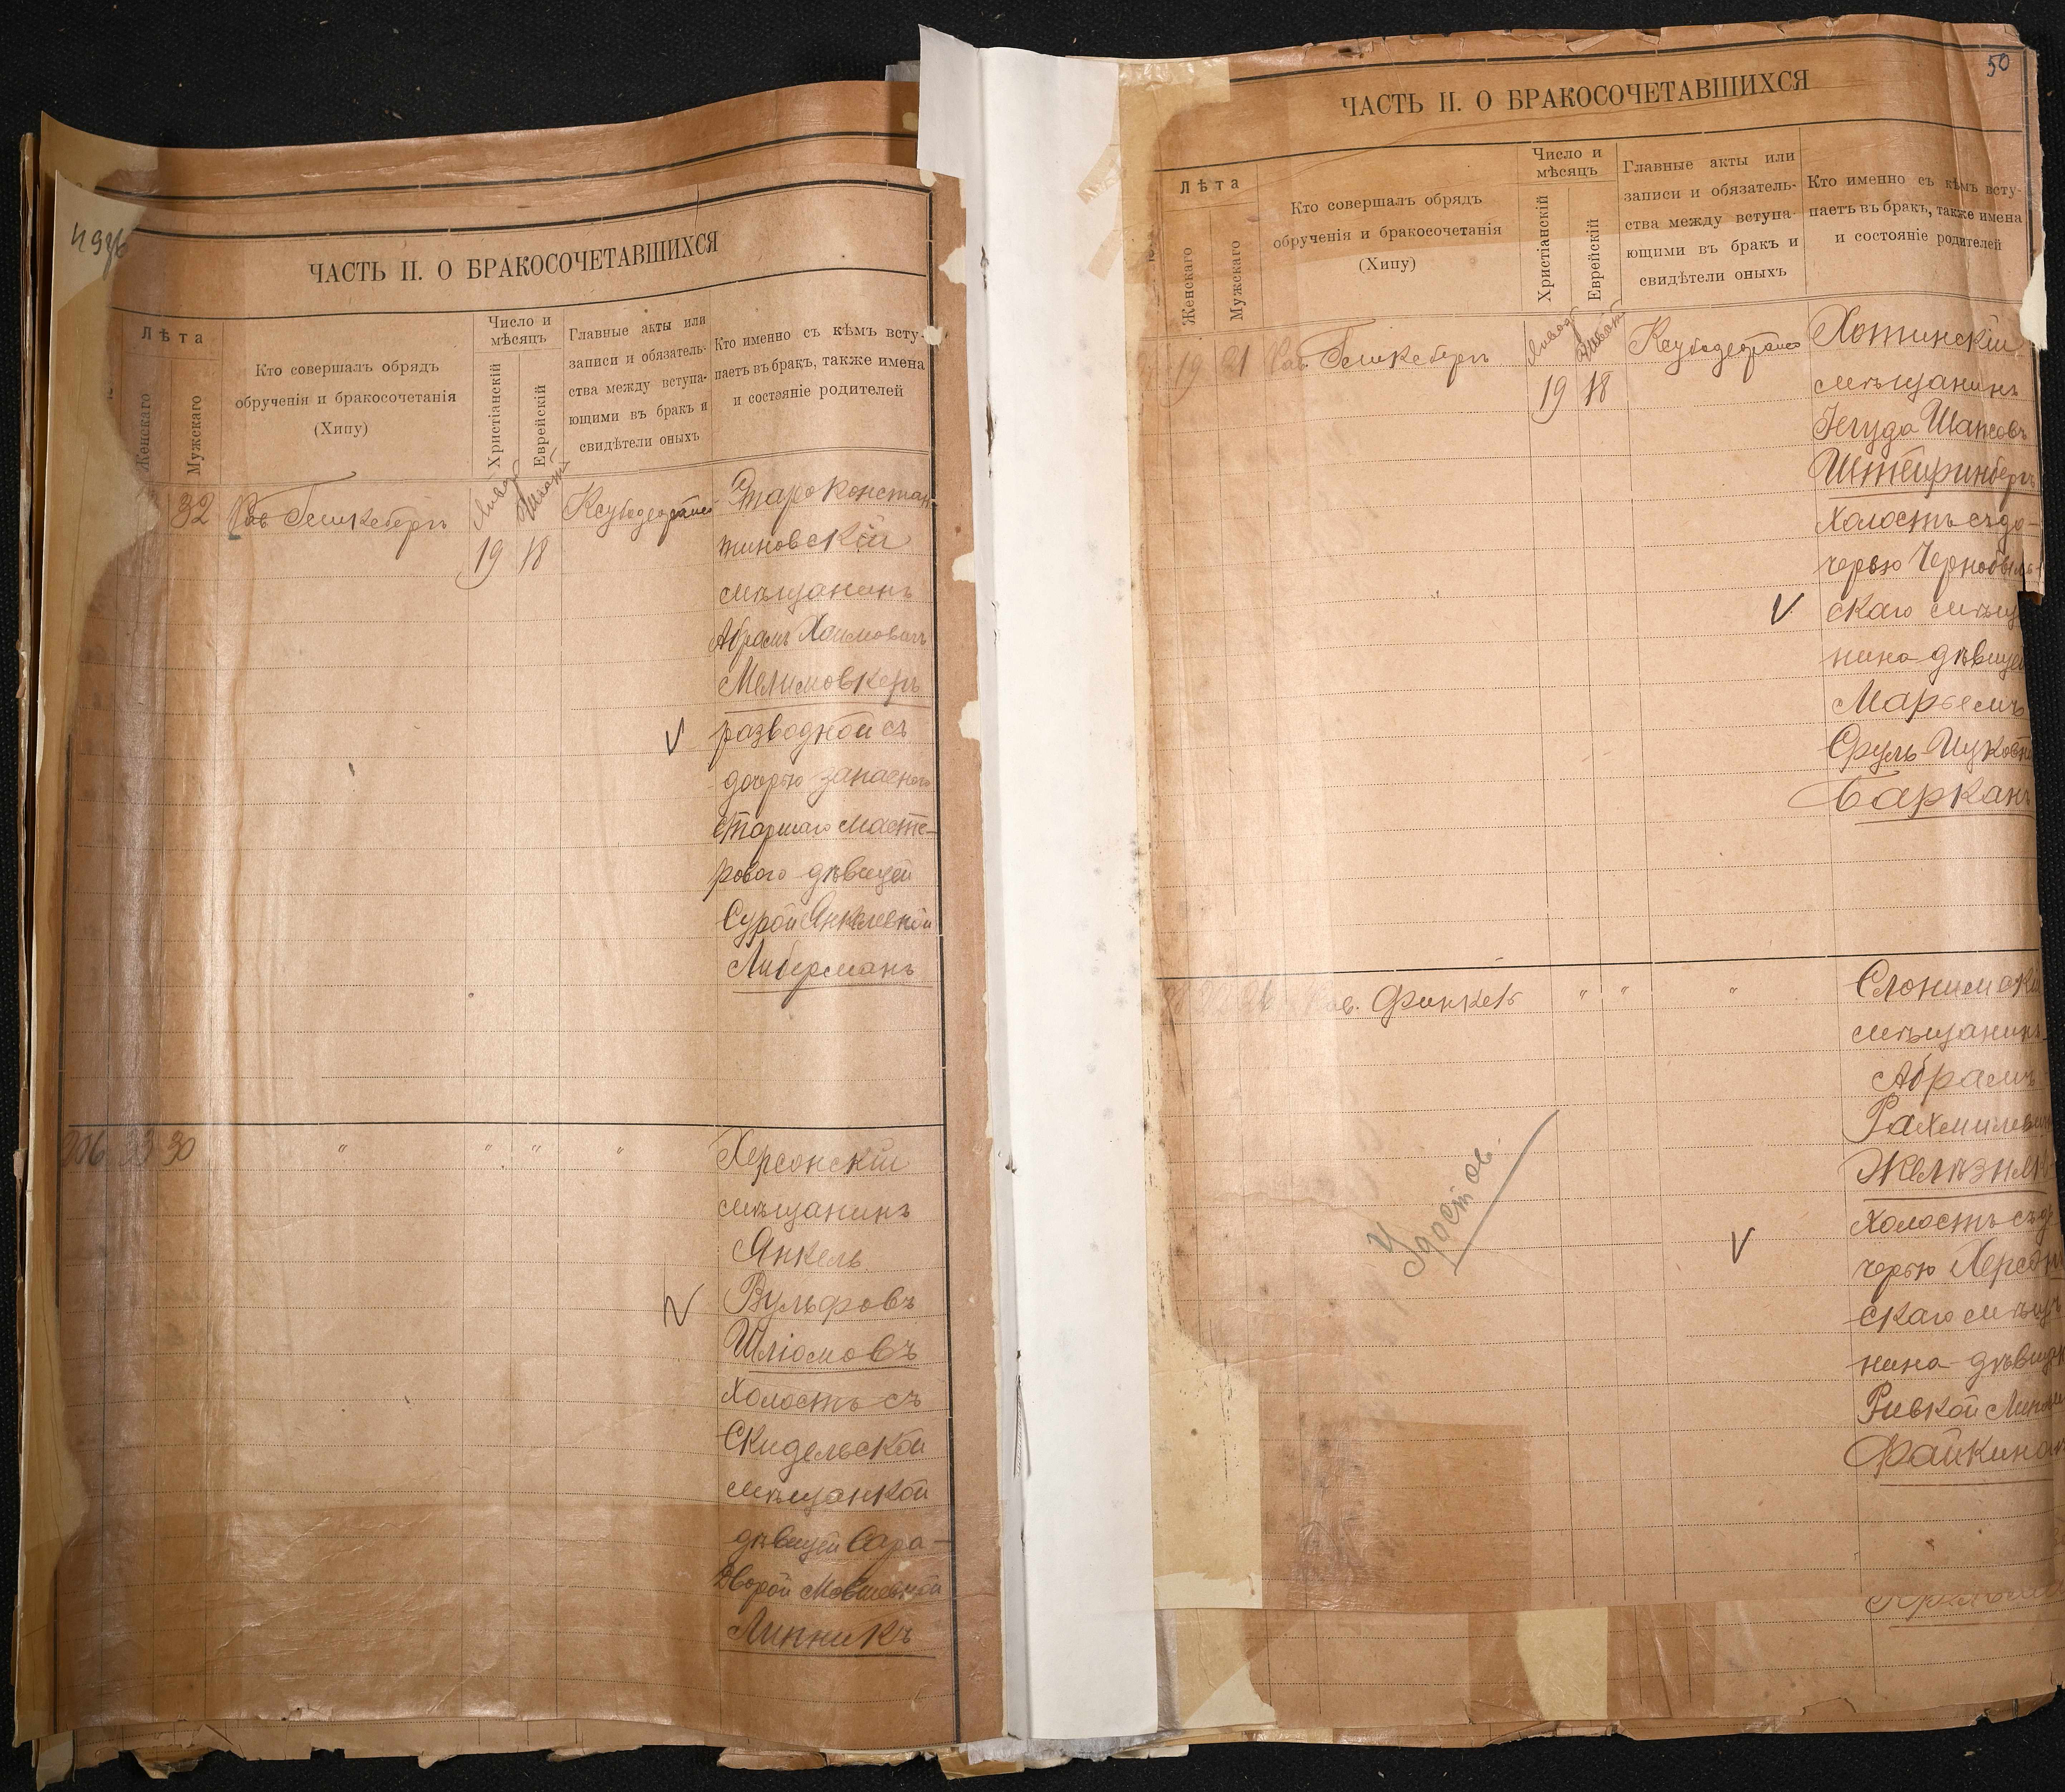 ЧАСТЬ II. О БРАКОСОЧЕТАВШИХСЯ
Лѣта
Женскаго
Мужскаго
Кто совершалъ обрядъ
обрученія и бракосочетанія
(Хипу)
Число и
мѣсяцъ
Христіанскій
Еврейскій
Главные акты или
записи и обязатель-
ства между вступа-
ющими въ бракъ и
свидѣтели оныхъ
Кто именно съ кѣмъ всту-
паетъ въ бракъ, также имена
и состояніе родителей
32
Рав.
19 18
Староконстан-
тиновскій
мѣщанинъ
Абрамъ Хаимовичъ
разводной съ
дочерью запаснаго
старшаго масте-
рового дѣвицей
Сурой Янкелевной
Либерманъ
206 33 30 " " " "
Херсонскій
мѣщанинъ
Янкель
Вульфовъ
Шліомовъ
холостъ съ
Скидельской
мѣщанкой
дѣвицей Сара-
Дворой Мовшевной
Липникъ
50
ЧАСТЬ II. О БРАКОСОЧЕТАВШИХСЯ
Лѣта
Женскаго
Мужскаго
Кто совершалъ обрядъ
обрученія и бракосочетанія
(Хипу)
Число и
мѣсяцъ
Христіанскій
Еврейскій
Главные акты или
записи и обязатель-
ства между вступа-
ющими въ бракъ и
свидѣтели оныхъ
Кто именно съ кѣмъ всту-
паетъ въ бракъ, также имена
и состояніе родителей
19 21 Рав.
19 18
Хотинскій
мѣщанинъ
Іегуда
Штейринбергъ
холостъ съ до-
черью Чернобыль-
скаго мѣщ
нина дѣвицей
Марьемъ
Сруль Ицковной
Барканъ
Рав. Финкель " " "
Слонимскій
мѣщанинъ
Абрамъ
Рахмилевичъ
холостъ съ до
черью Херсон
скаго мѣща
нина дѣвицей
Ривкой
Файкиной
Удостов.